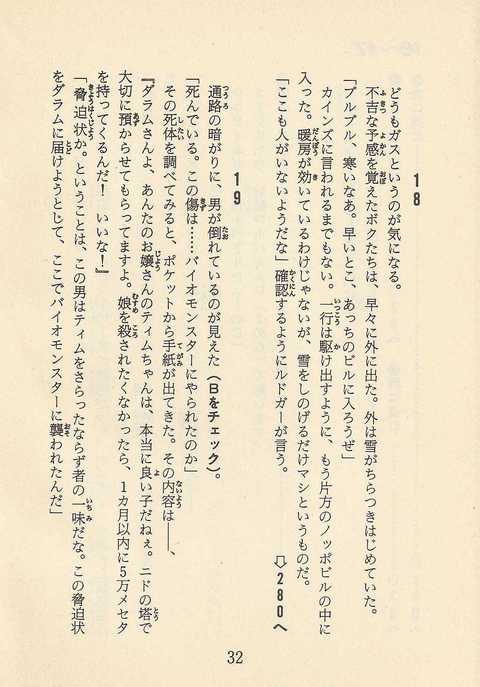 18
どうもガスというのが気になる。
不吉な予感を覚えたボクたちは、早々に外に出た。外は雪がちらつきはじめていた。
「ブルブル、寒いなあ。早いとこ、あっちのビルに入ろうぜ」
カインズに言われるまでもない。一行は駆け出すように、もう片方のノッポビルの中に
入った。暖房が効いているわけじゃないが、雪をしのげるだけマシというものだ。
「ここも人がいないようだな」確認するようにルドガーが言う。
⇨280へ
19
通路の暗がりに、男が倒れているのが見えた(Bをチェック)。
「死んでいる。この傷は……バイオモンスターにやられたのか」
その死体を調べてみると、ポケットから手紙が出てきた。その内容は――、
『ダラムさんよ、あんたのお嬢さんのティムちゃんは、本当に良い子だねぇ。ニドの塔で
大切に預からせてもらってますよ。娘を殺されたくなかったら、1カ月以内に5万メセタ
を持ってくるんだ! いいな!』
「脅迫状か。ということは、この男はティムをさらったならず者の一味だな。この脅迫状
をダラムに届けようとして、ここでバイオモンスターに襲われたんだ」
32